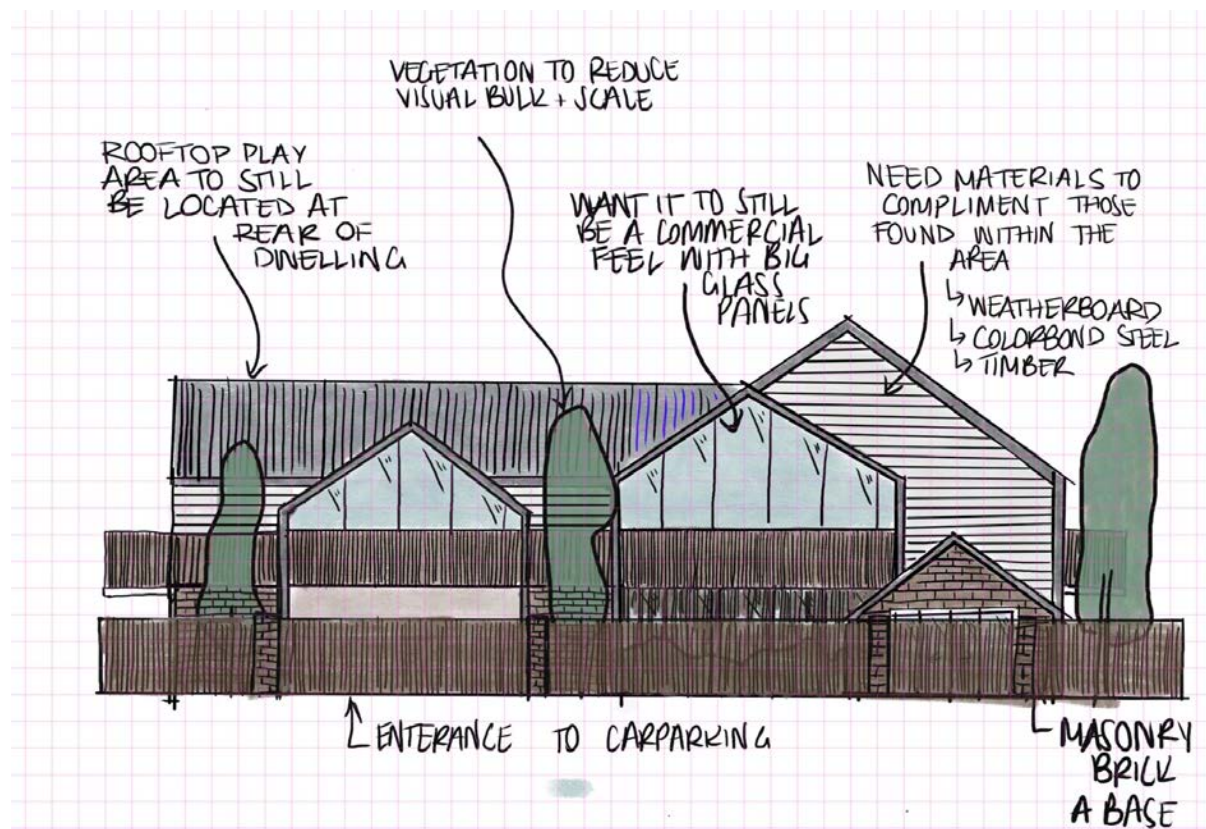 VEGETATION TO REDUCE
VISUAL BULK + SCALE
ROOFTOP PLAY
AREA TO STILL
BE LOCATED AT
REAR OF
DWELLING
WANT IT TO STILL
BE A COMMERCIAL
FEEL WITH BIG
GLASS
PANELS
NEED MATERIALS TO
COMPLIMENT THOSE
FOUND WITHIN THE
AREA
↳ WEATHERBOARD
↳ COLORBOND STEEL
↳ TIMBER
ENTERANCE TO CARPARKING
MASONRY
BRICK
A BASE